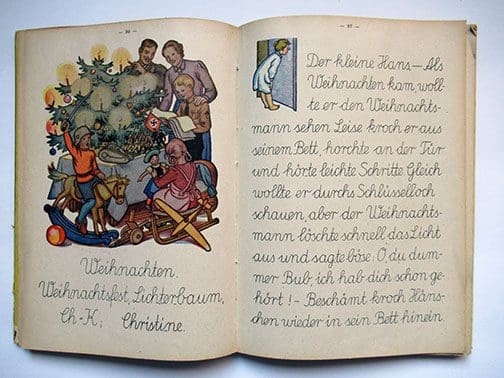 — 36 —
Weihnachten.
Weihnachtsfest, Lichterbaum,
Ch-K; Christine.
— 37 —
Der kleine Hans — Als
Weihnachten kam, woll-
te er den Weihnachts-
mann sehen Leise kroch er aus
seinem Bett, horchte an der Tür
und hörte leichte Schritte Gleich
wollte er durchs Schlüsselloch
schauen, aber der Weihnachts-
mann löschte schnell das Licht
aus und sagte böse: O, du dum-
mer Bub, ich hab dich schon ge-
hört! — Beschämt kroch Häns-
chen wieder in sein Bett hinein.